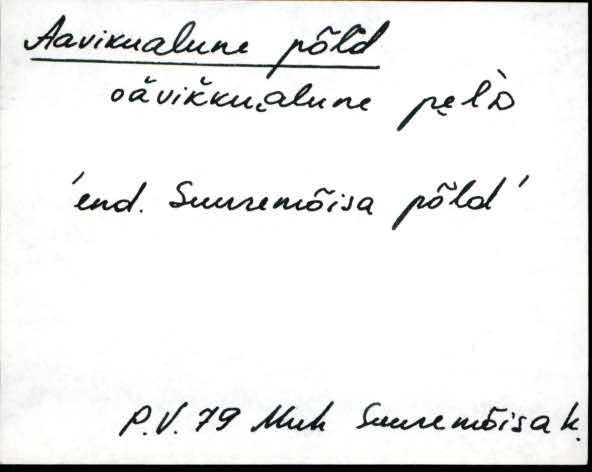 Aavikualune põld
oävikku̬alune pe̮l̀D
'end. Suuremõisa põld'
P.V. 79 Muh Suuremõisa k.